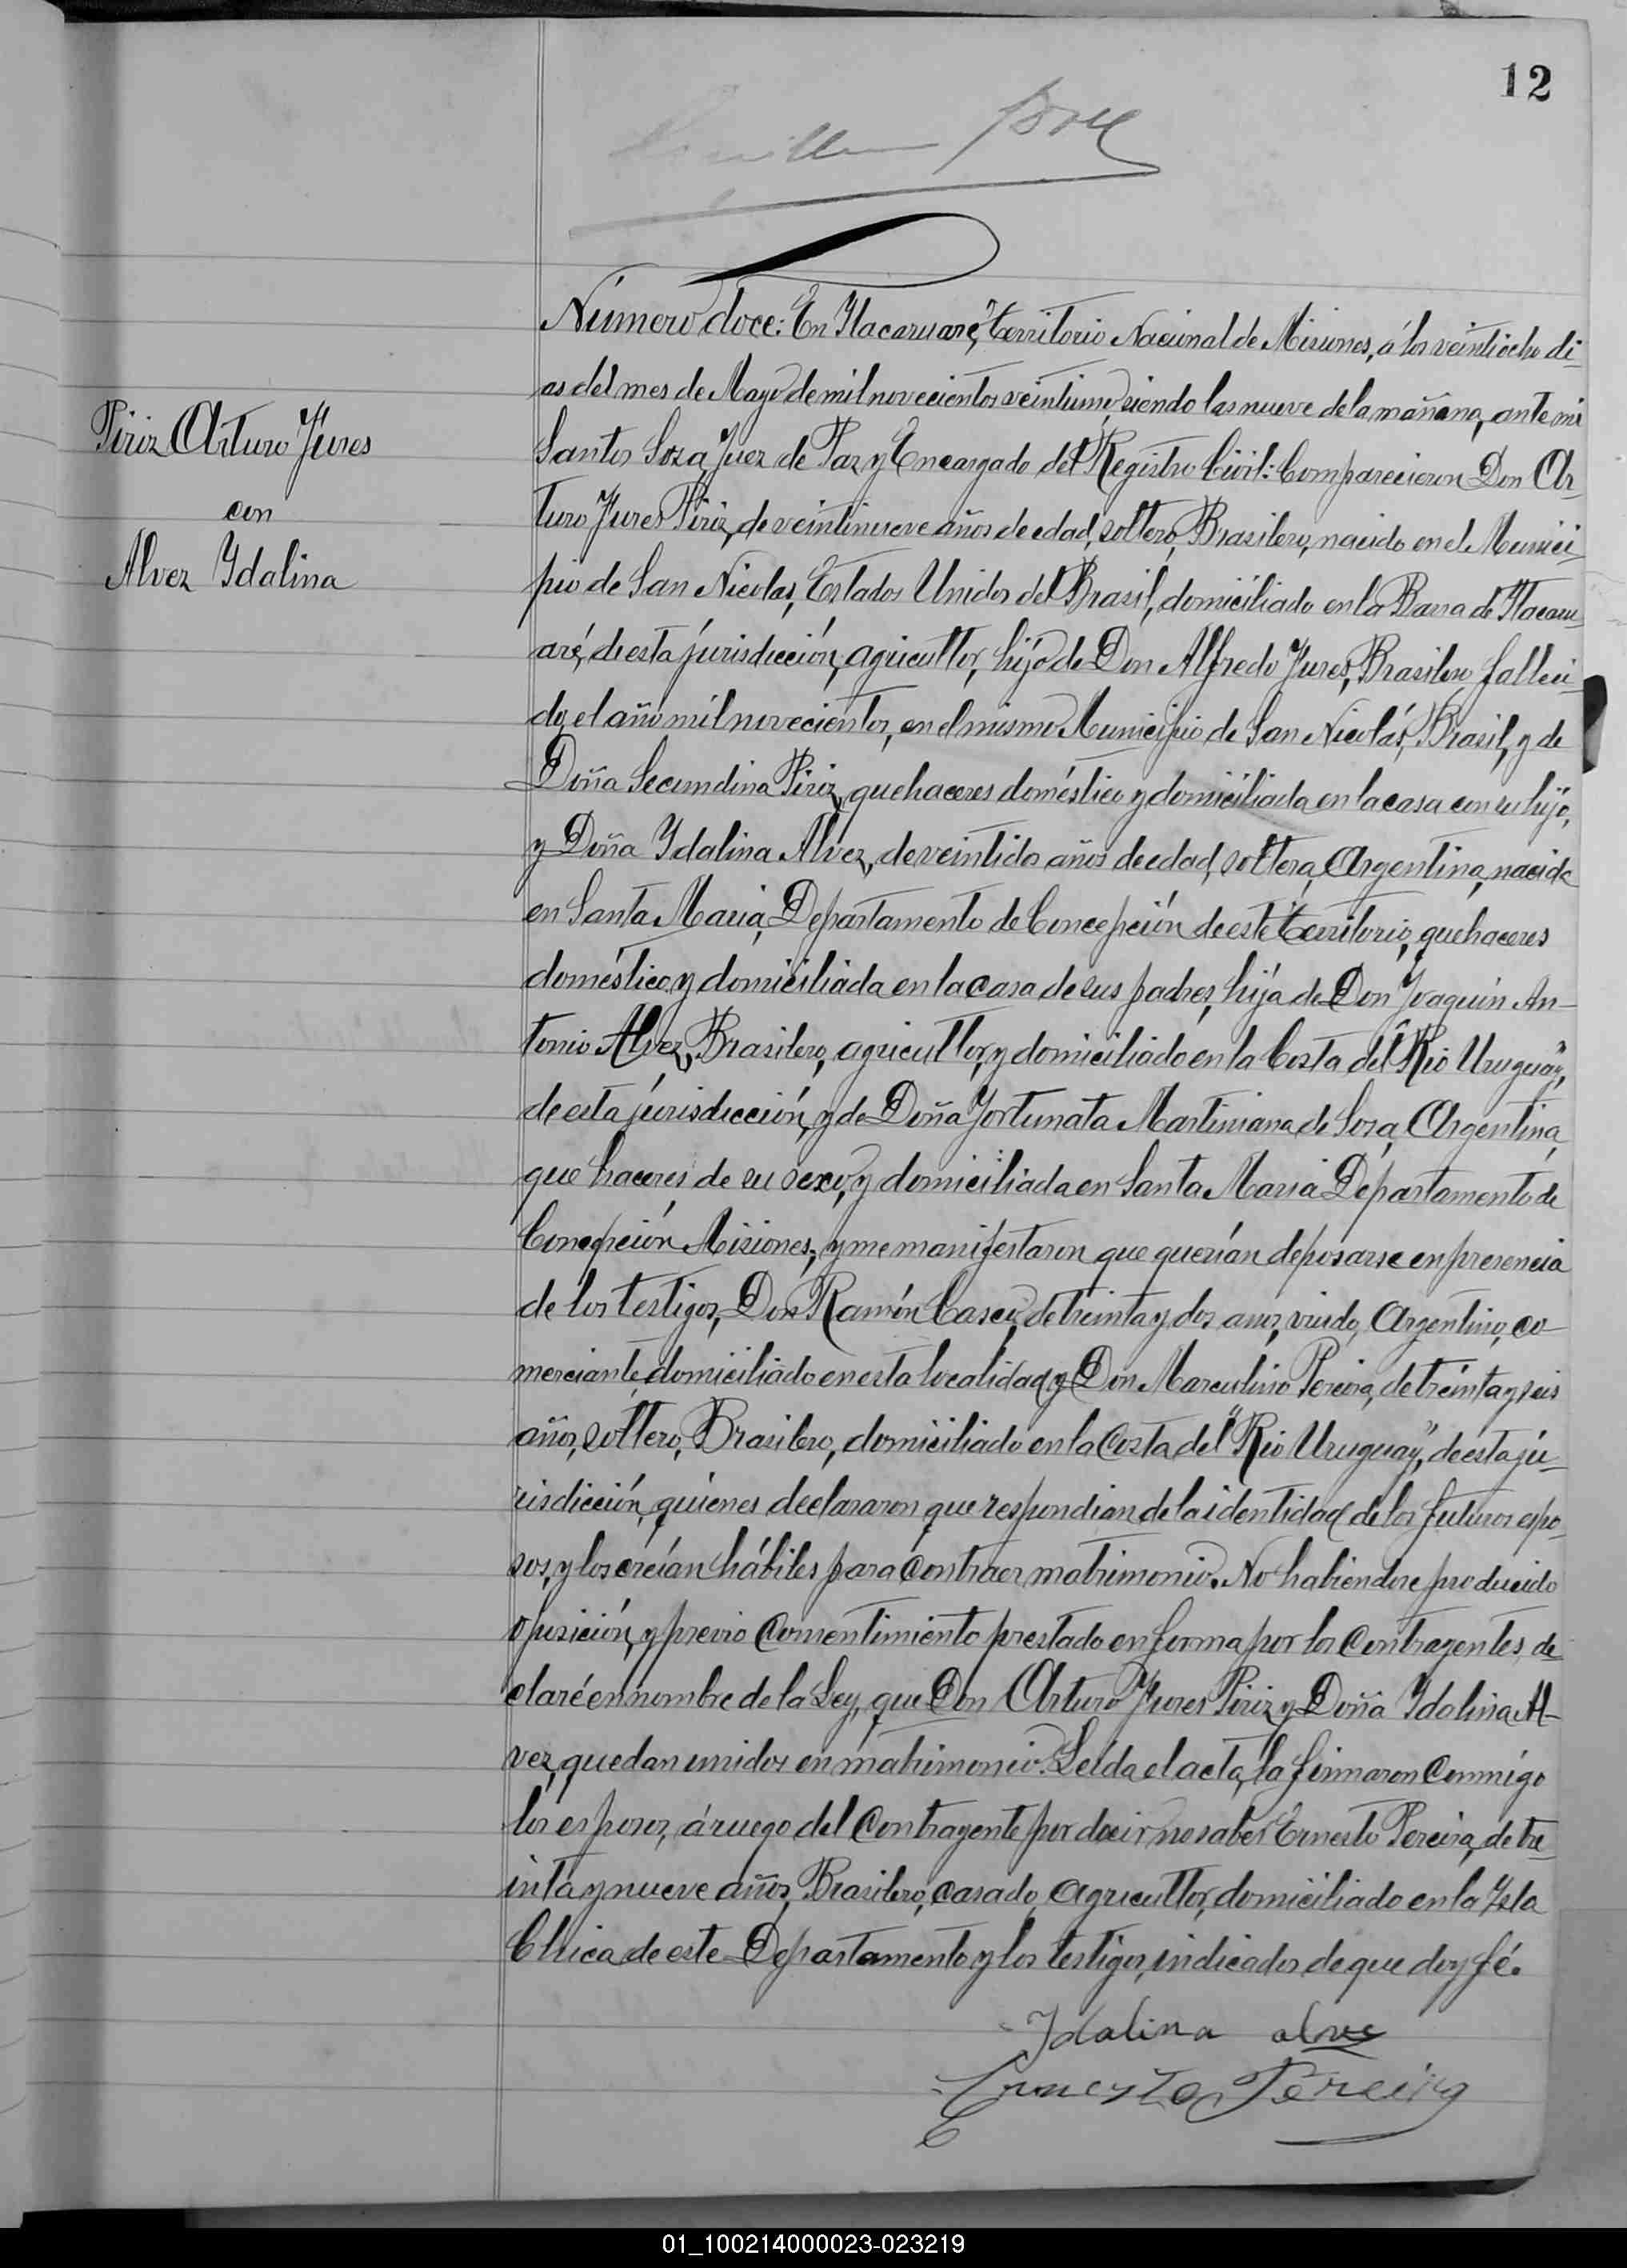 12
Número doce: En Itacaruaré, Territorio Nacional de Misiones, á los veintiocho di-
as del mes de Mayo de mil novecientos veintiuno, siendo las nueve de la mañana, ante mi
Piriz Arturo Jures
con
Alvez Ydalina
Santos Soza, Juez de Paz y Encargado del Registro Civil: Comparecieron Don Ar-
turo Jures Piriz, de veintinueve años de edad, soltero, Brasilero, nacido en el Munici-
pio de San Nicolás, Estados Unidos del Brasil, domiciliado en la Barra de Itacaru-
aré, de esta jurisdicción, agricultor, hijo de Don Alfredo Jures, Brasilero falleci-
do, el año mil novecientos, en el mismo Municipio de San Nicolás, Brasil, y de
Doña Secundina Piriz, quehaceres doméstico y domiciliada en la casa con su hijo,
y Doña Ydalina Alvez, de veintido años de edad, soltera, Argentina, nacida
en Santa Maria, Departamento de Concepción de este Territorio, quehaceres
doméstico, y domiciliada en la casa de sus padres, hija de Don Joaquin An-
tonio Alvez, Brasilero, agricultor, y domiciliado en la Costa del "Rio Uruguay",
de esta jurisdicción, y de Doña Fortunata Martiniana de Soza, Argentina,
que haceres de su sexo, y domiciliada en Santa Maria Departamento de
Concepción Misiones; y me manifestaron que querían deposarse en presencia
de los testigos, Don Ramón Casco, de treinta y dos anos, viudo, Argentino, co-
merciante, domiciliado en esta localidad, y Don Marculino Pereira, de treinta y seis
años, soltero, Brasilero, domiciliado en la Costa del "Rio Uruguay", de esta ju-
risdicción, quiénes declararon que respondian de la identidad de los futuros espo-
sos, y los créían hábiles para contraer matrimonio. No habiendose producido
oposición, y previo consentimiento prestado en forma por los contrayentes, de-
claré en nombre de la Ley, que Don Arturo Jures Piriz y Doña Ydalina Al-
vez, quedan unidos en matrimonio. Leída el acta, la firmaron conmigo
los esposos, á ruego del contrayente por decir no saber Ernesto Pereira, de tre-
inta y nueve años, Brasilero, casado, agricultor, domiciliado en la Isla
Chica de este Departamento y los testigos, indicados de que doy fé.
Idalina alves
Ernesto Pereira
01_100214000023-023219